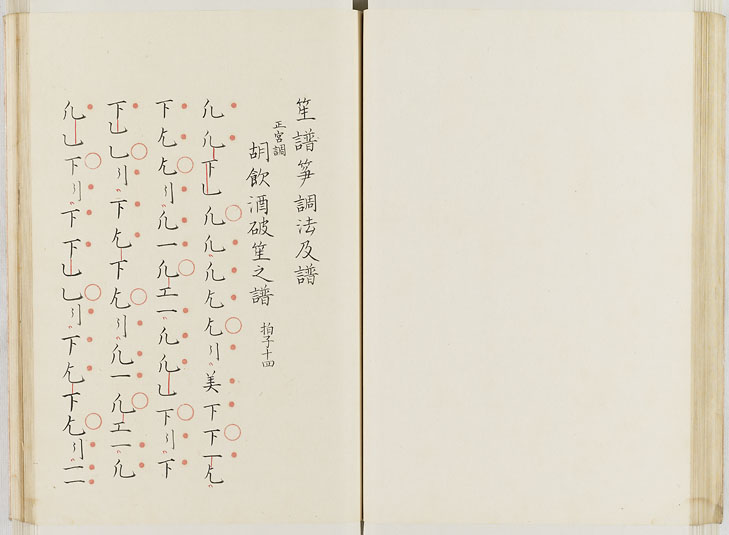 笙譜箏調法及譜
正宮調
胡飲酒破笙之譜 拍子十四
凢凢下乚凢凢凢乞乞リ美下下乞
下乞乞リ凢一凢工一凢凢乚下リ下
下乚乚リ下乞下乞リ凢一凢工一凢
凢乚下リ下下乚乚リ下乞下乞リ一一